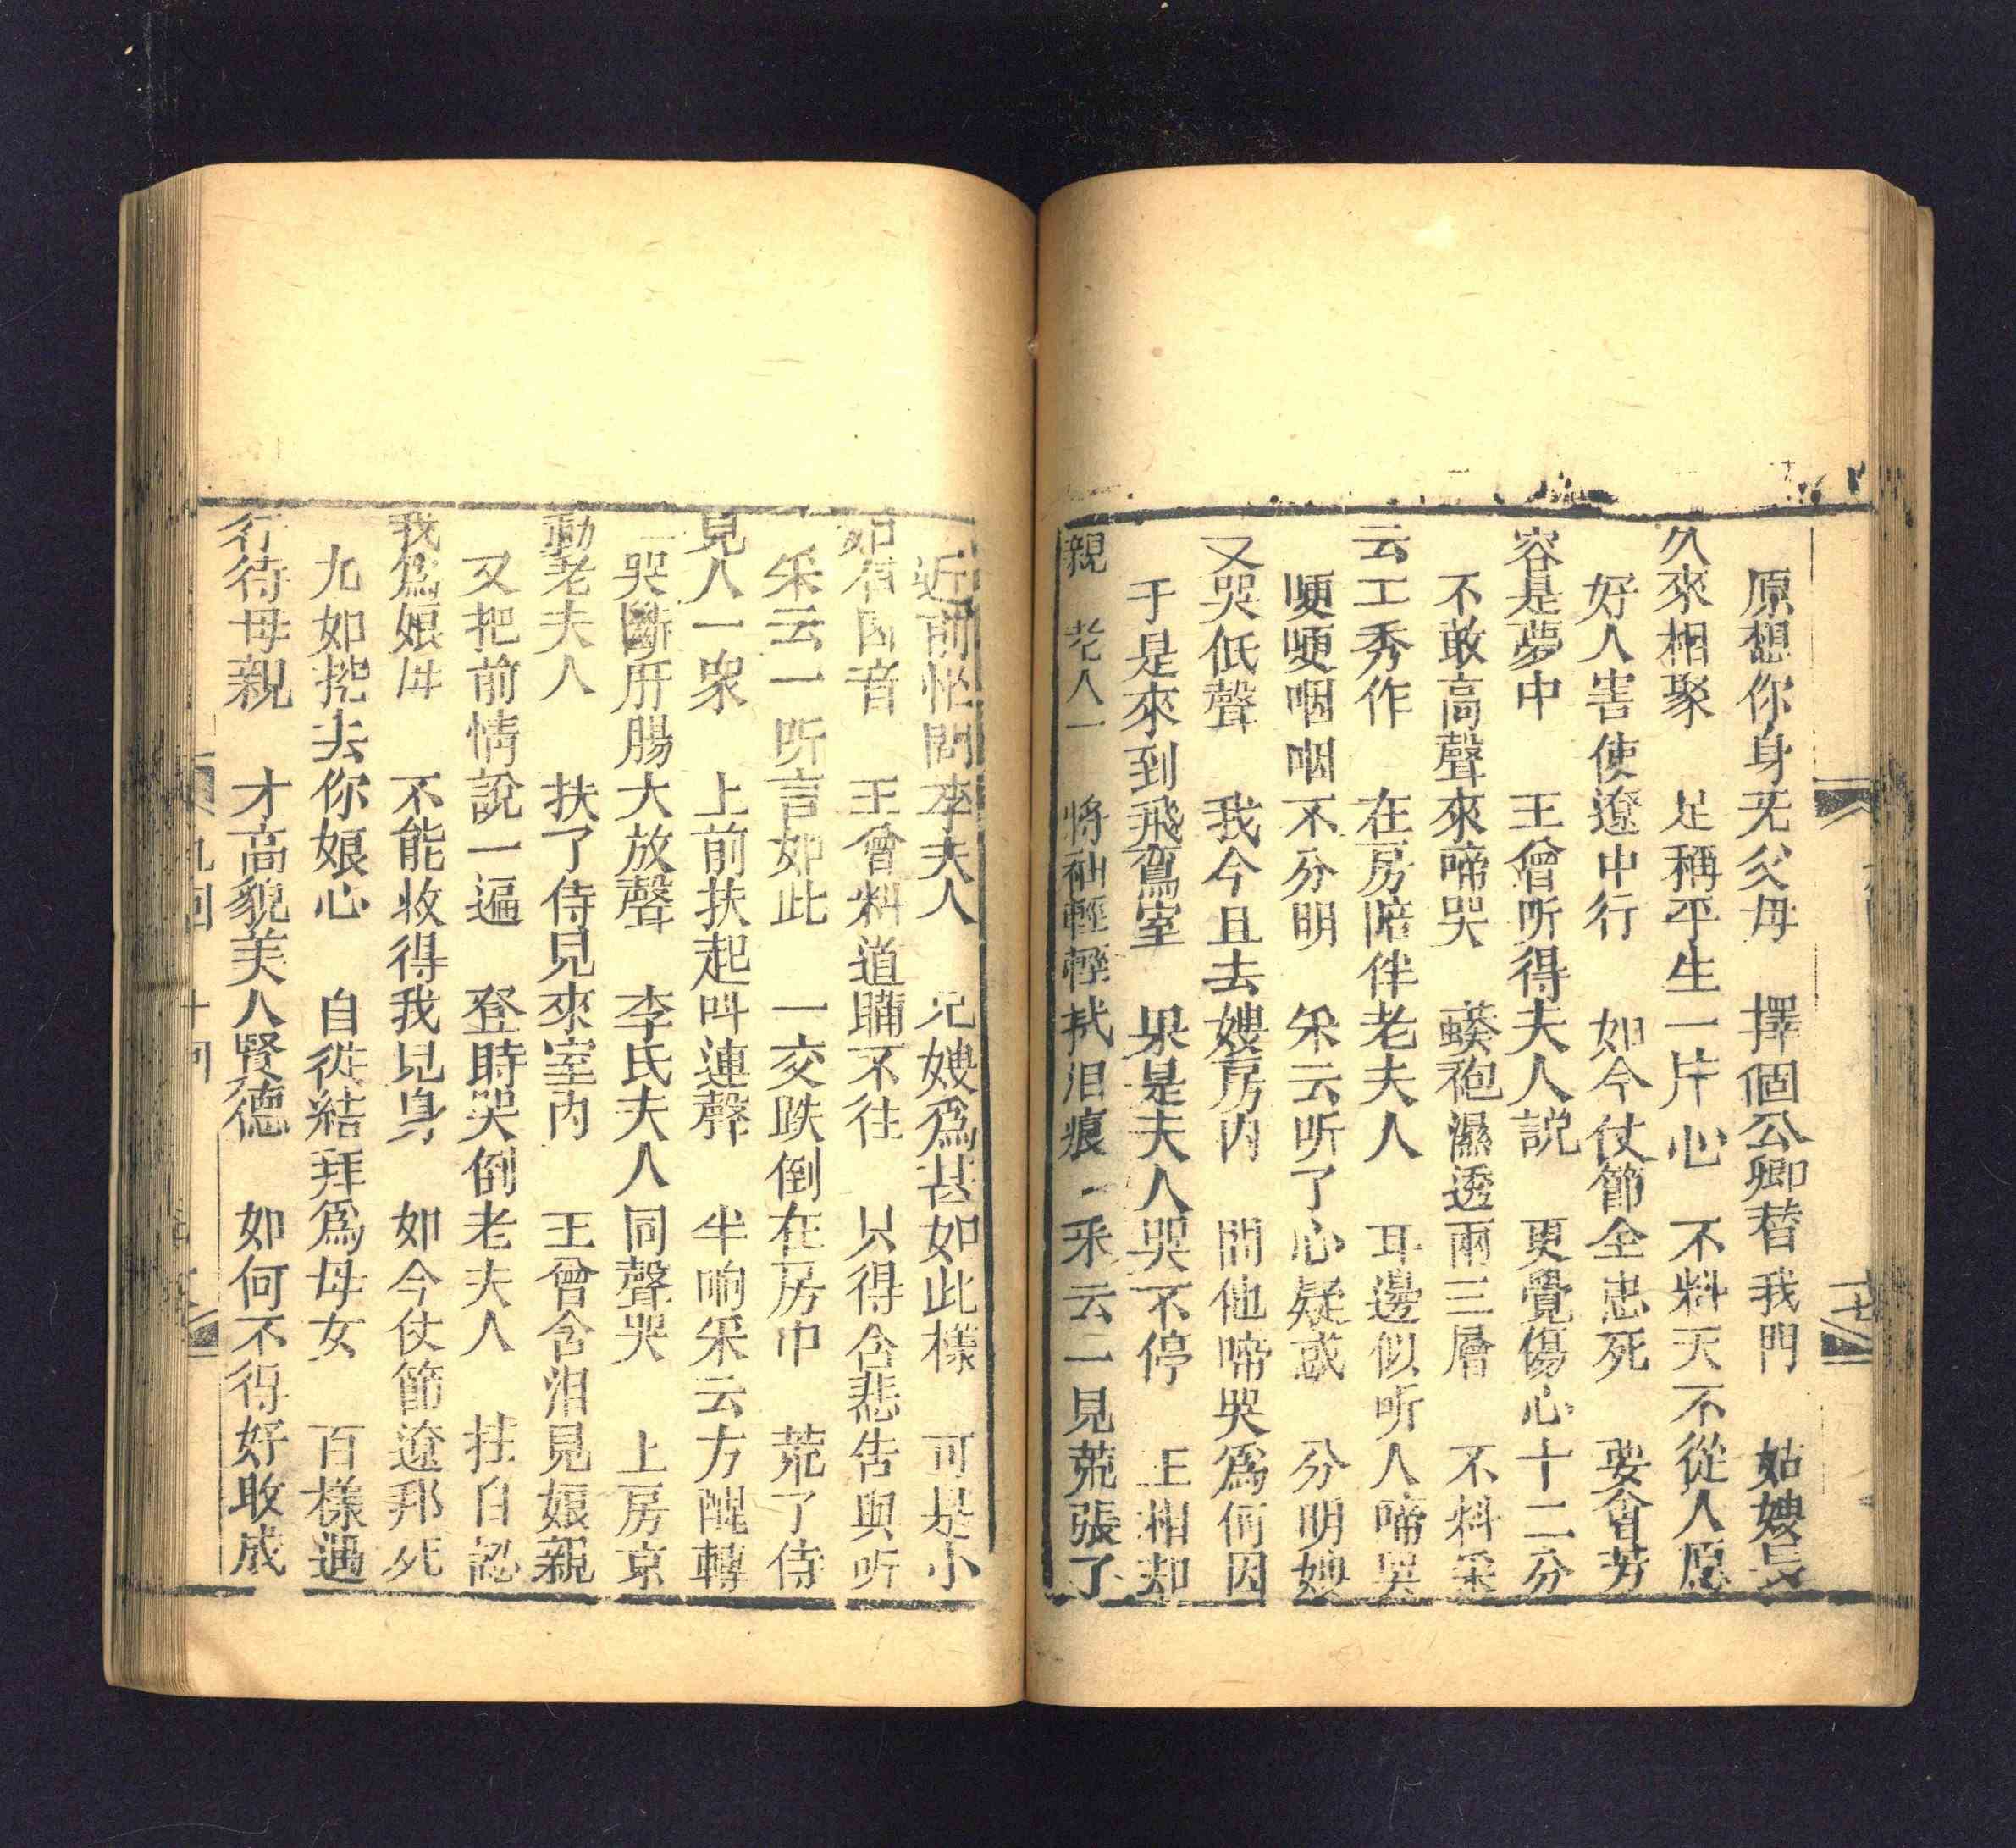 原想你身无父母　擇個公卿替我門　姑嫂長
久來相聚　足稱平生一片心　不料天不從人愿
好人害使遼中行　如今仗節全忠死　娶會芳
容是夢中　王曾听得夫人説　更覺傷心十二分
不敢高聲來啼哭　蟒袍濕透兩三層　不料采
云工秀作　在房陪伴老夫人　耳邊似听人啼哭
哽哽咽咽不分明　采云听了心疑惑　分明嫂
又哭低聲　我今且去嫂房内　問他啼哭爲何因
于是來到飛鴛室　果是夫人哭不停　王相却
親　老人一　將袖輕輕拭泪痕　采云一見荒張了
近前忙問李夫人　兄嫂爲甚如此樣　可是小
王曾料道瞞不往　只得含悲告與听
采云一听言如此　一交跌倒在房巾　荒了侍
見人一衆　上前扶起叫連聲　半晌采云方醒轉
哭斷肝腸大放聲　李氏夫人同聲哭　上房京
動老夫人　扶了侍兒來室内　王曾含泪見娘親
又把前情説一遍　登時哭倒老夫人　扯自認
我爲娘　不能收得我兒身　如今仗節遼邦死
九如挖去你娘心　自從結拜爲母女　百樣遇
行待母親　才高貌美人賢德　如何不得好敢成
十七